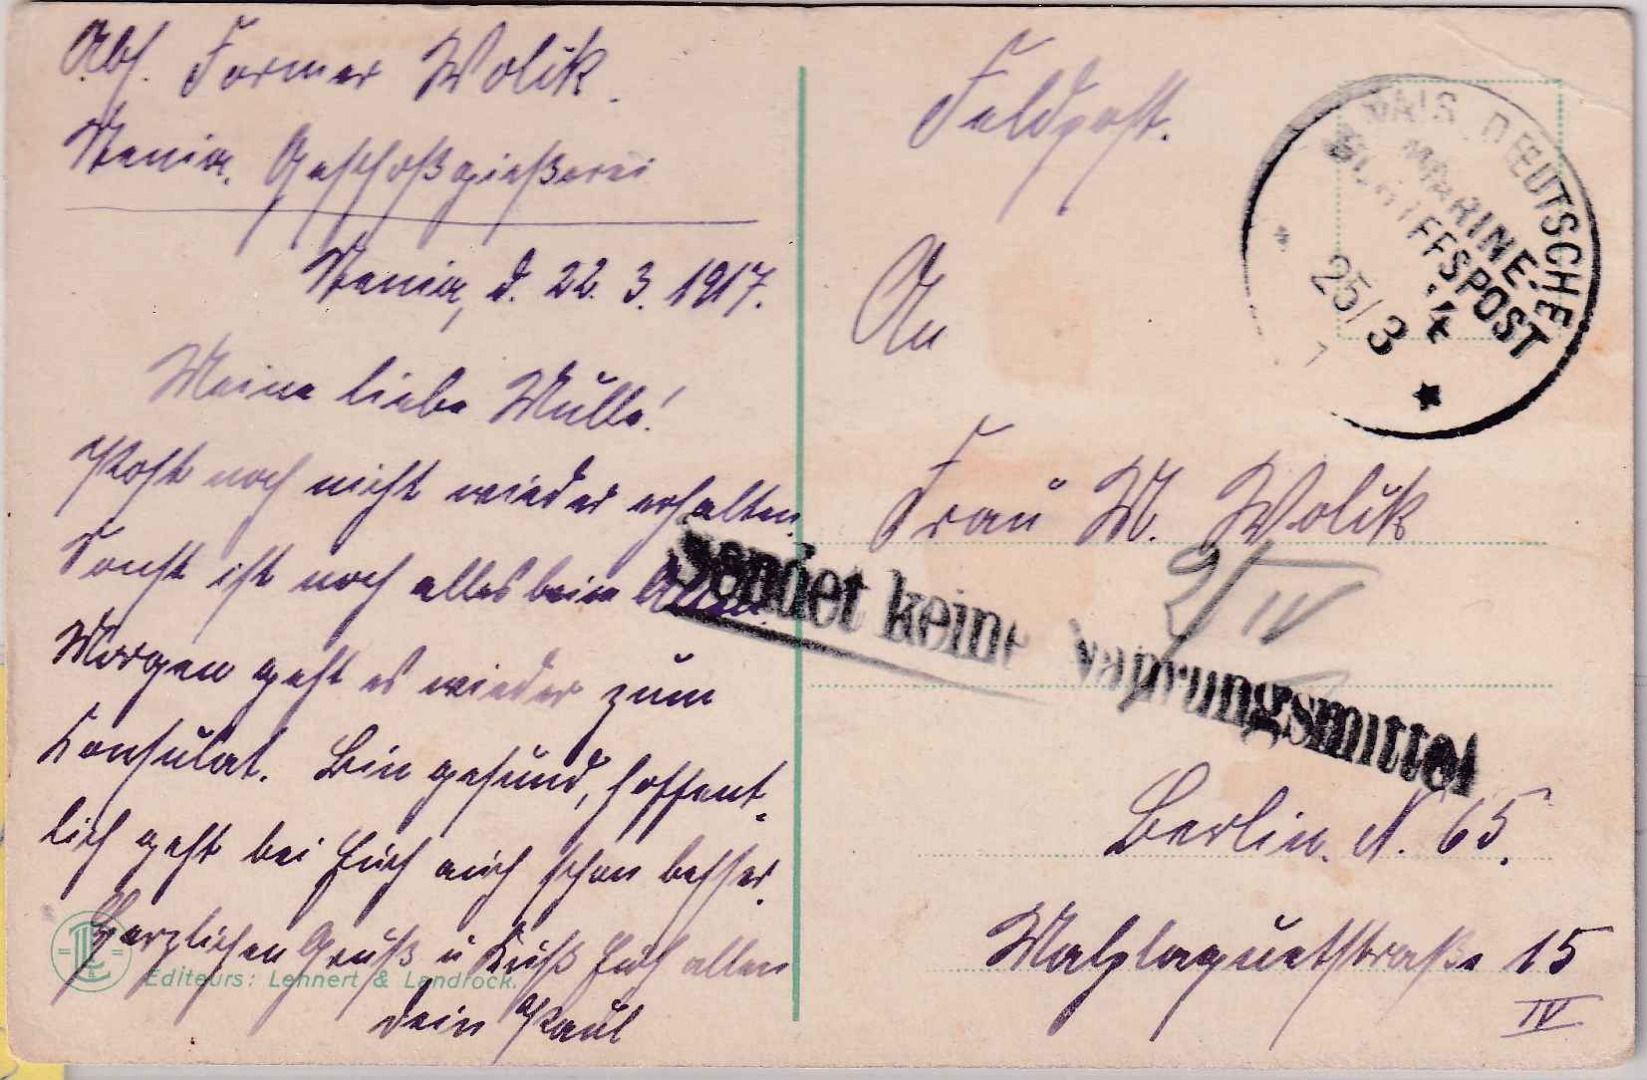 Abs. Former Wolik.
Stenia. Geschoßgießerei
Stenia, d. 22. 3. 1917.
Meine liebe Mulle!
Post noch nicht wieder erhalten.
Sonst ist noch alles beim Alten.
Morgen geht es wieder zum
Konsulat. Bin gesund, hoffent-
lich geht bei Euch auch schon besser.
Herzlichen Gruß u Kuß Euch allen
dein Paul
Editeurs: Lehnert & Landrock.
Feldpost.
KAIS. DEUTSCHE
MARINE-
SCHIFFSPOST
25/3
An
Frau M. Wolik
2/IV
sendet keine Nahrungsmittel
Berlin. N. 65.
Malplaquetstraße 15
IV